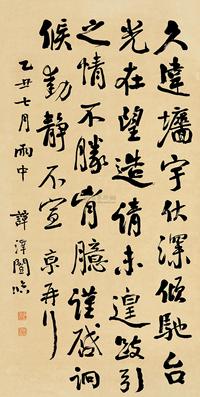 久違牆宇伏深傾馳台
光在望造請未遑跂引
之情不勝胷臆謹啓詗
候動靜不宣 京再行
乙丑七月雨中 譚澤闓臨